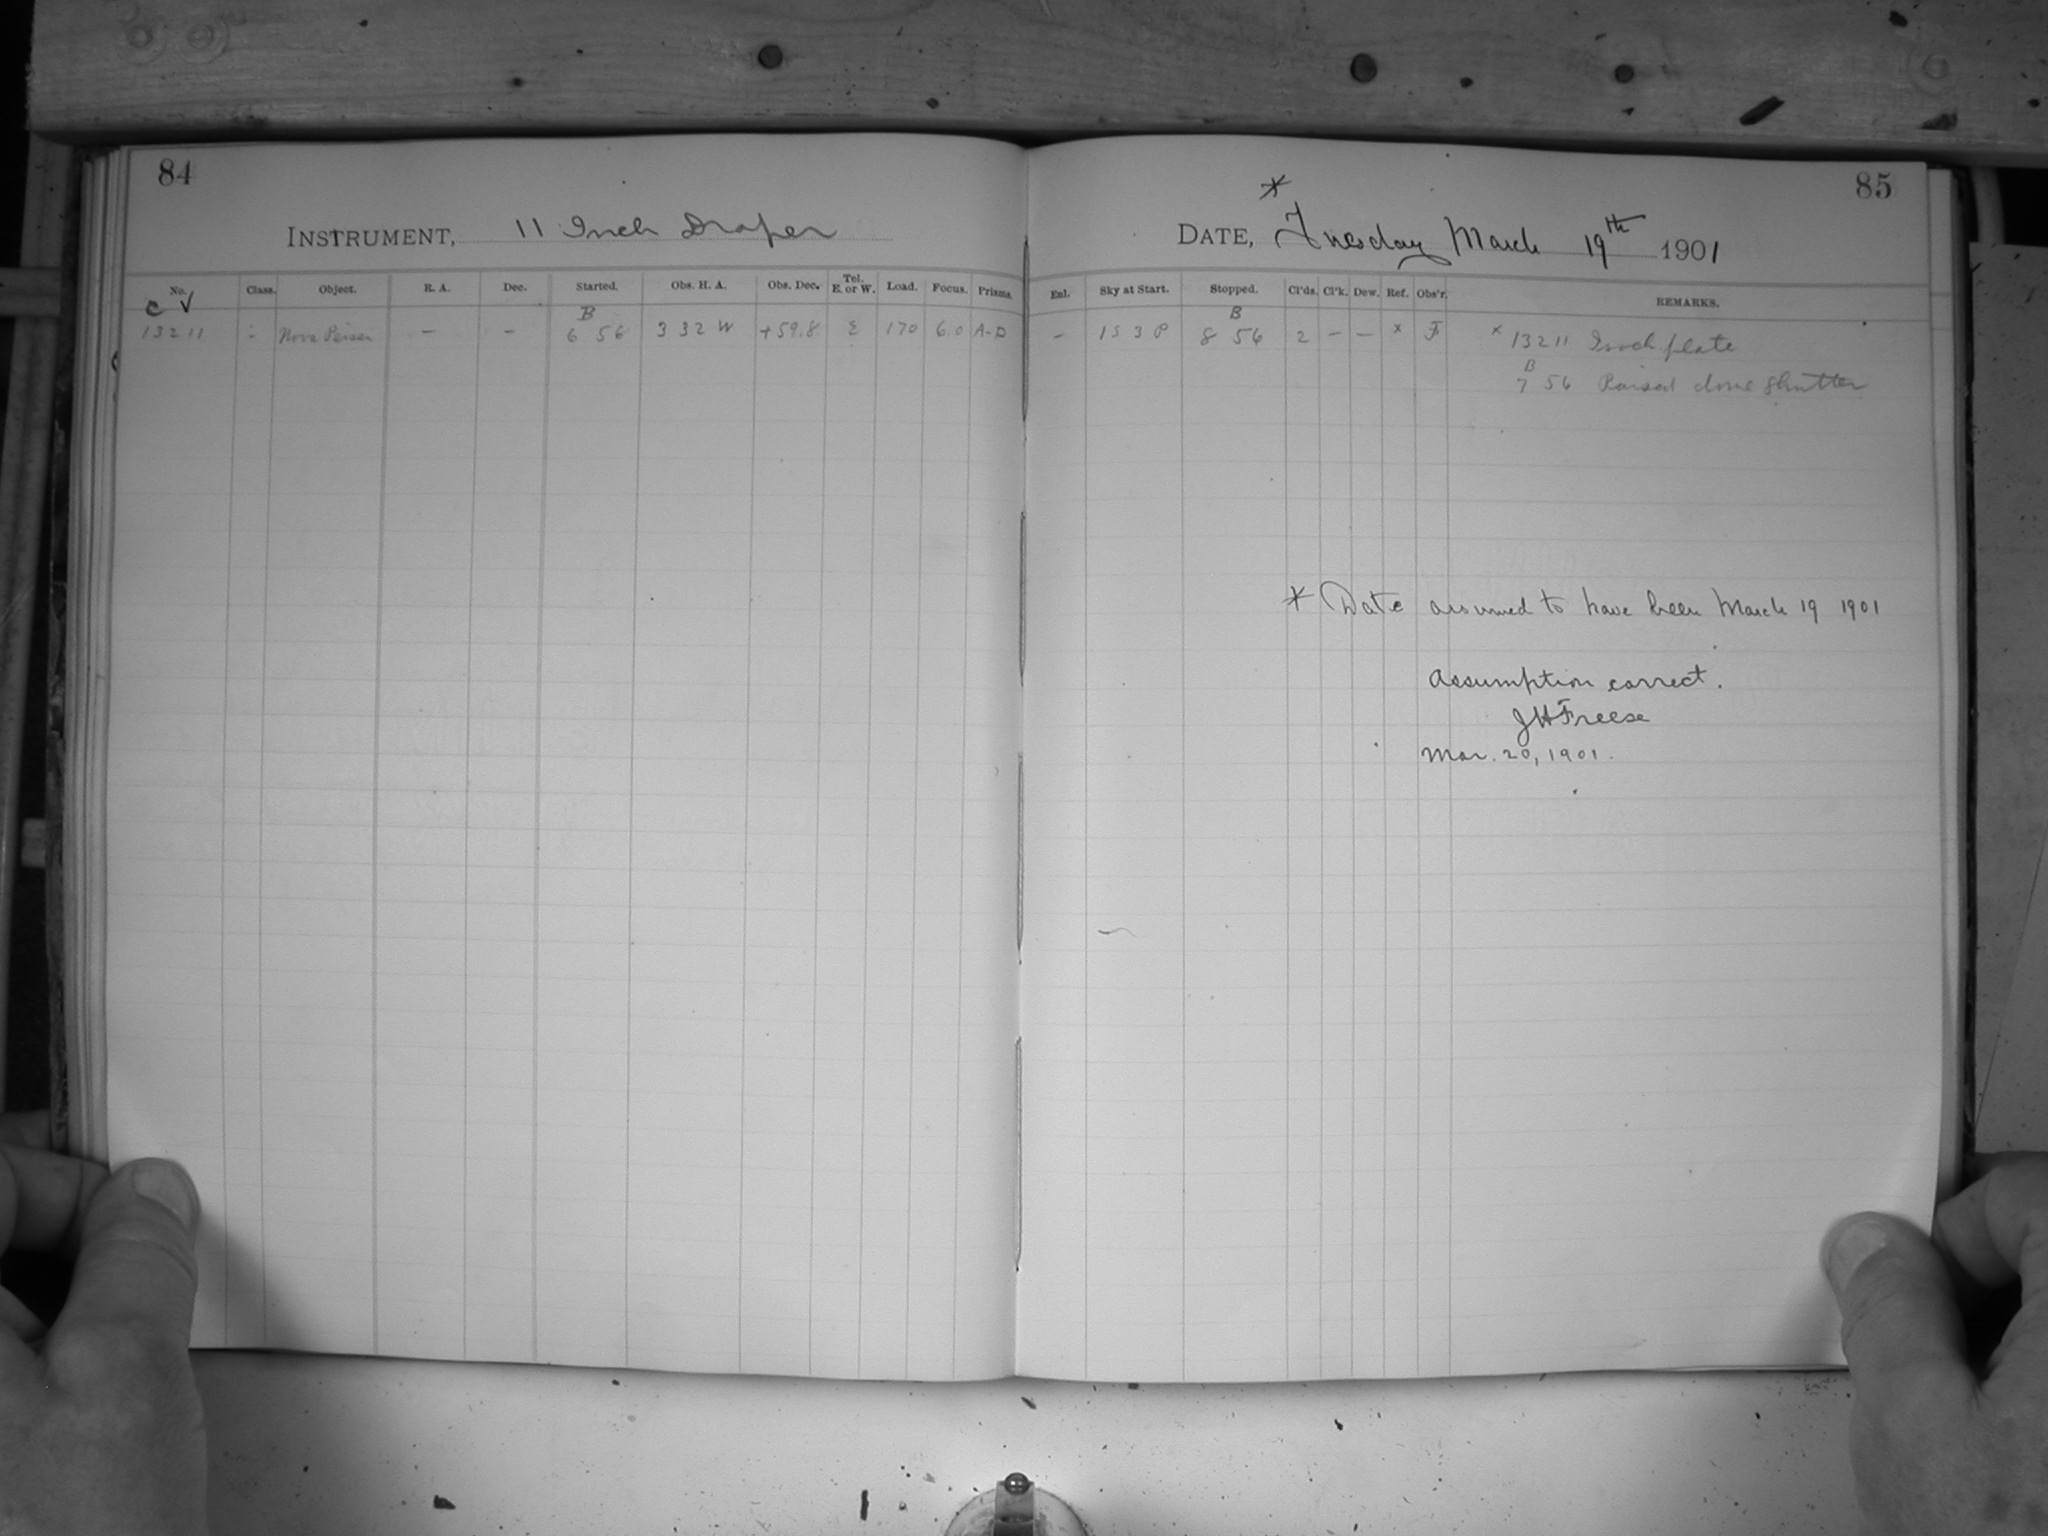 84
INSTRUMENT, 11 Inch Draper
No. Class. Object. R. A. Dec. Started. Obs. H. A. Obs. Dec. Tel. E. or W. Load. Focus. Prisms.
C √ B
13211 Nova Persei — — 6 56 3 32 W +59.8 E 170 6.0 A-D
85
*
DATE, Tuesday March 19th 1901
Enl. Sky at Start. Stopped. Cl'ds. Cl'k. Dew. Ref. Obs'r. REMARKS.
B
— 15 3 P 8 56 2 — — x F x 13211 plate
B
7 56 Raised dome shutter
* Date assumed to have been March 19 1901
Assumption correct.
JHFreese
Mar. 20, 1901.